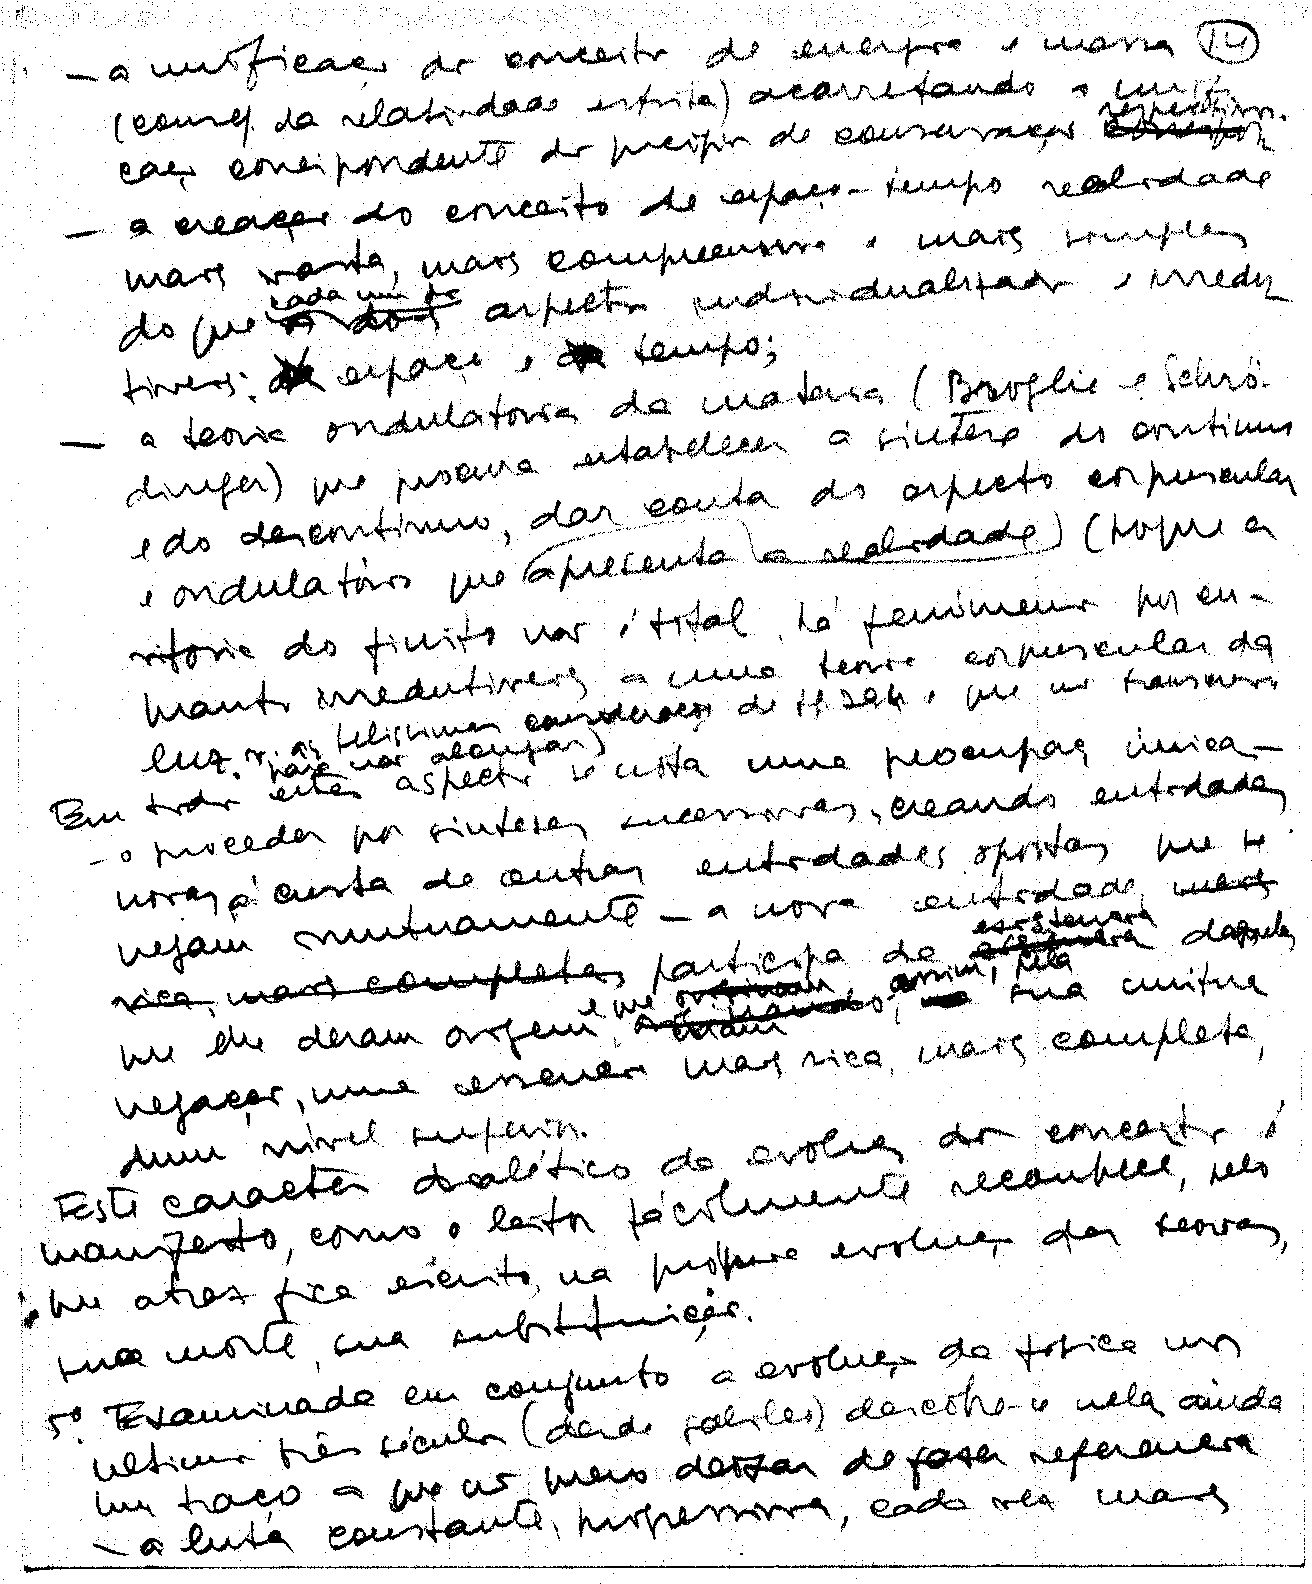 — a unificação dos conceitos de energia e massa 14
(conseq. da relatividade estrita) acarretando a unifi-
cação correspondente dos princípios de conservação respectivos.
— a creação do conceito de espaço-tempo realidade
mais vasta, mais compreensiva e mais simples
do que cada um dos aspectos individualizados e irredu-
tiveis: espaço e tempo;
— a teoria ondulatória da matéria (Broglie e Schrö-
dinger) que procura estabelecer a síntese do contínuo
e do descontínuo, dar conta do aspecto corpuscular
e ondulatório que apresenta a realidade) (porque a
vitória do finito não é total, há fenómenos por en-
quanto irredutiveis a uma teoria corpuscular da
luz. v. as belissimas considerações de p. 204 e que no transcrevo
para não alongar)
Em todos estes aspectos se nota uma preocupação única —
— o proceder por sínteses sucessivas, creando entidades
novas à custa de outras entidades opostas que se
negam mutuamente — a nova entidade mais
rica, mais completa, participa da essência daquelas
que lhe deram origem e que originam, assim, pela sua mútua
negação, uma essencia mais rica, mais completa,
dum nivel superior.
Este caracter dialético da evolução dos conceitos é
manifesto, como o leitor fàcilmente reconhece, pelo
que atraz fica escrito, na própria evolução das teorias,
sua morte, sua substituição.
5º. Examinada em conjunto a evolução da física nos
ultimos três séculos (desde Galileo) descobre-se nela ainda
um traço a que não posso deixar de fazer referencia
— a luta constante, progressiva, cada vez mais